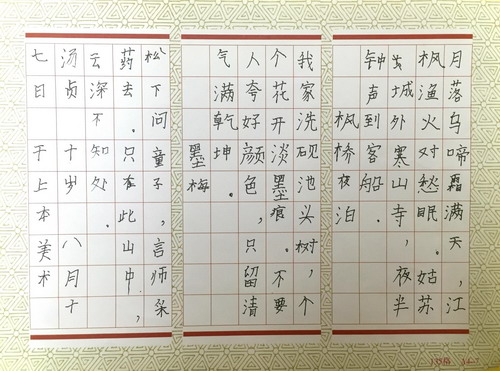 月落乌啼霜满天,江
枫渔火对愁眠。姑苏
城外寒山寺,夜半
钟声到客船。
枫桥夜泊
我家洗砚池头树,个
个花开淡墨痕。不要
人夸好颜色,只留清
气满乾坤。
墨梅
松下问童子,言师采
药去。只在此山中,
云深不知处。
汤贞 十岁 八月十
七日 于上本美术